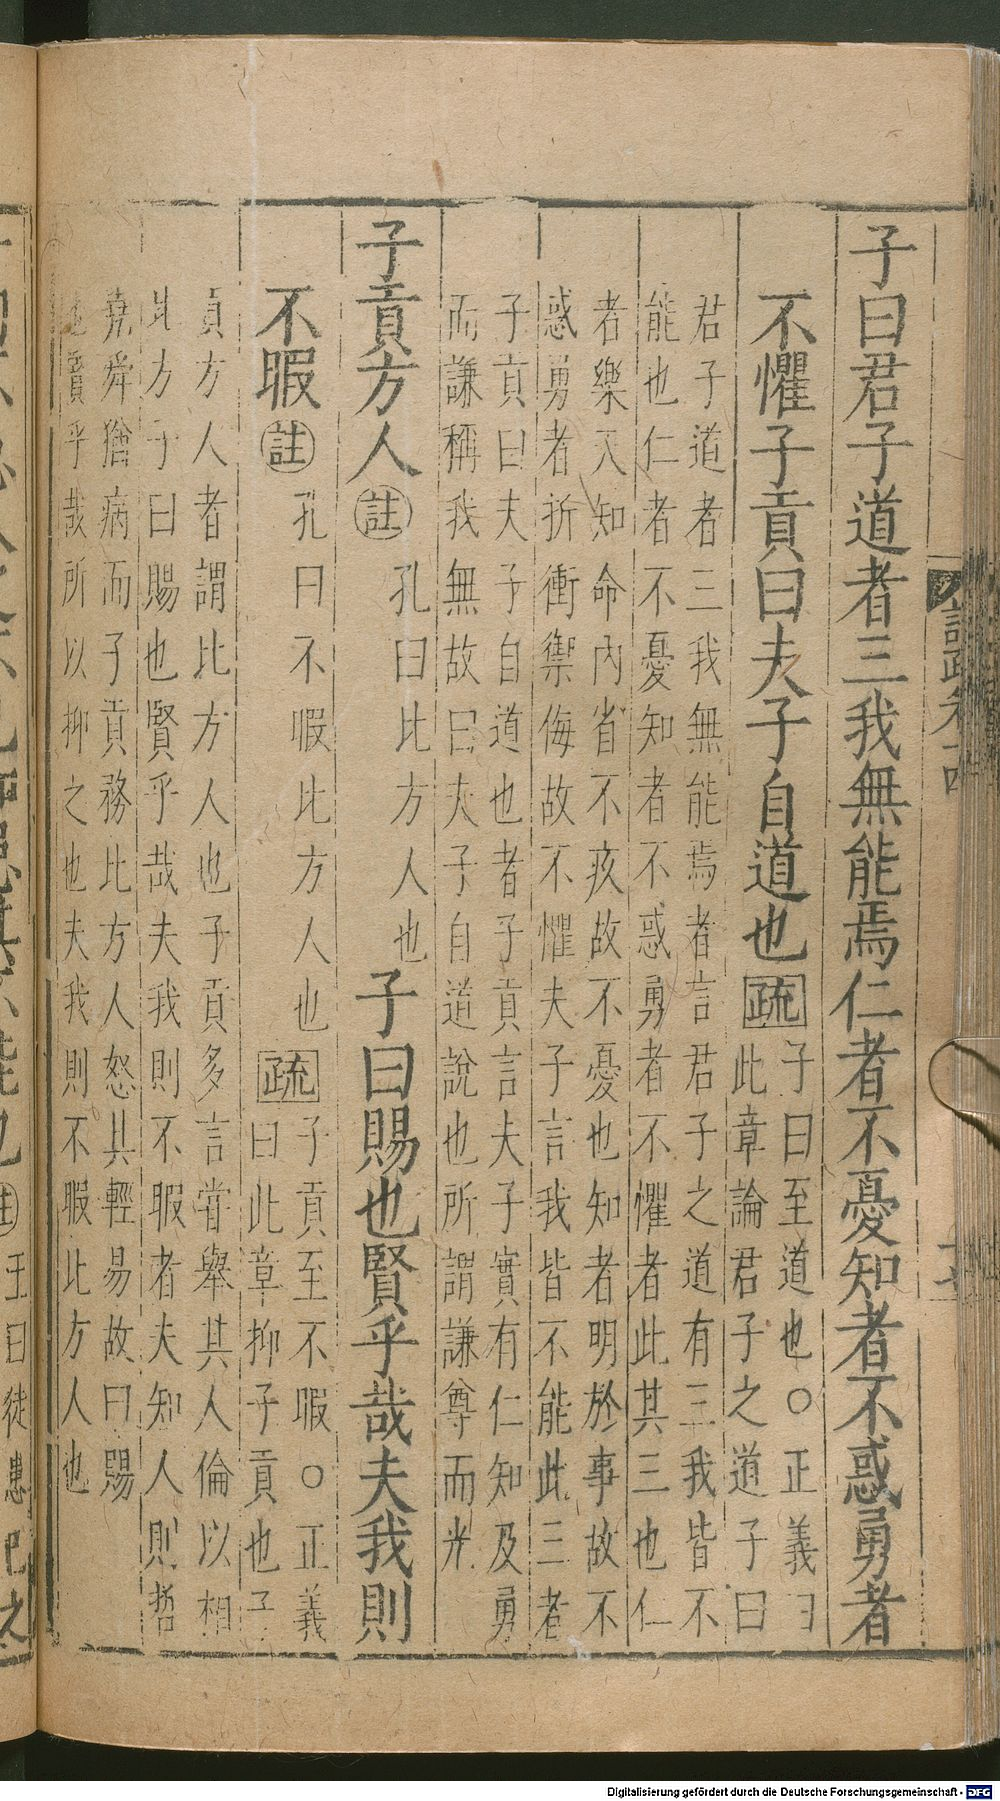 子曰君子道者三我無能焉仁者不憂知者不惑勇者
不懼子貢曰夫子自道也疏
子曰至道也○正義曰
此章論君子之道子曰
君子道者三我無能焉者言君子之道有三我皆不
能也仁者不憂知者不惑勇者不懼者此其三也仁
者樂天知命內省不疚故不憂也知者明於事故不
惑勇者折衝禦侮故不懼夫子言我皆不能此三者
子貢曰夫子自道也者子貢言夫子實有仁知及勇
而謙稱我無故曰夫子自道說也所謂謙尊而光
子貢方人註
孔曰比方人也
子曰賜也賢乎哉夫我則
不暇註
孔曰不暇比方人也
疏
子貢至不暇○正義
曰此章抑子貢也子
貢方人者謂比方人也子貢多言嘗舉其人倫以相
比方子曰賜也賢乎哉夫我則不暇者夫知人則哲
堯舜猶病而子貢務比方人怒其輕易故曰賜
也賢乎哉所以抑之也夫我則不暇比方人也
王曰徒患己之
Digitalisierung gefördert durch die Deutsche Forschungsgemeinschaft - DFG